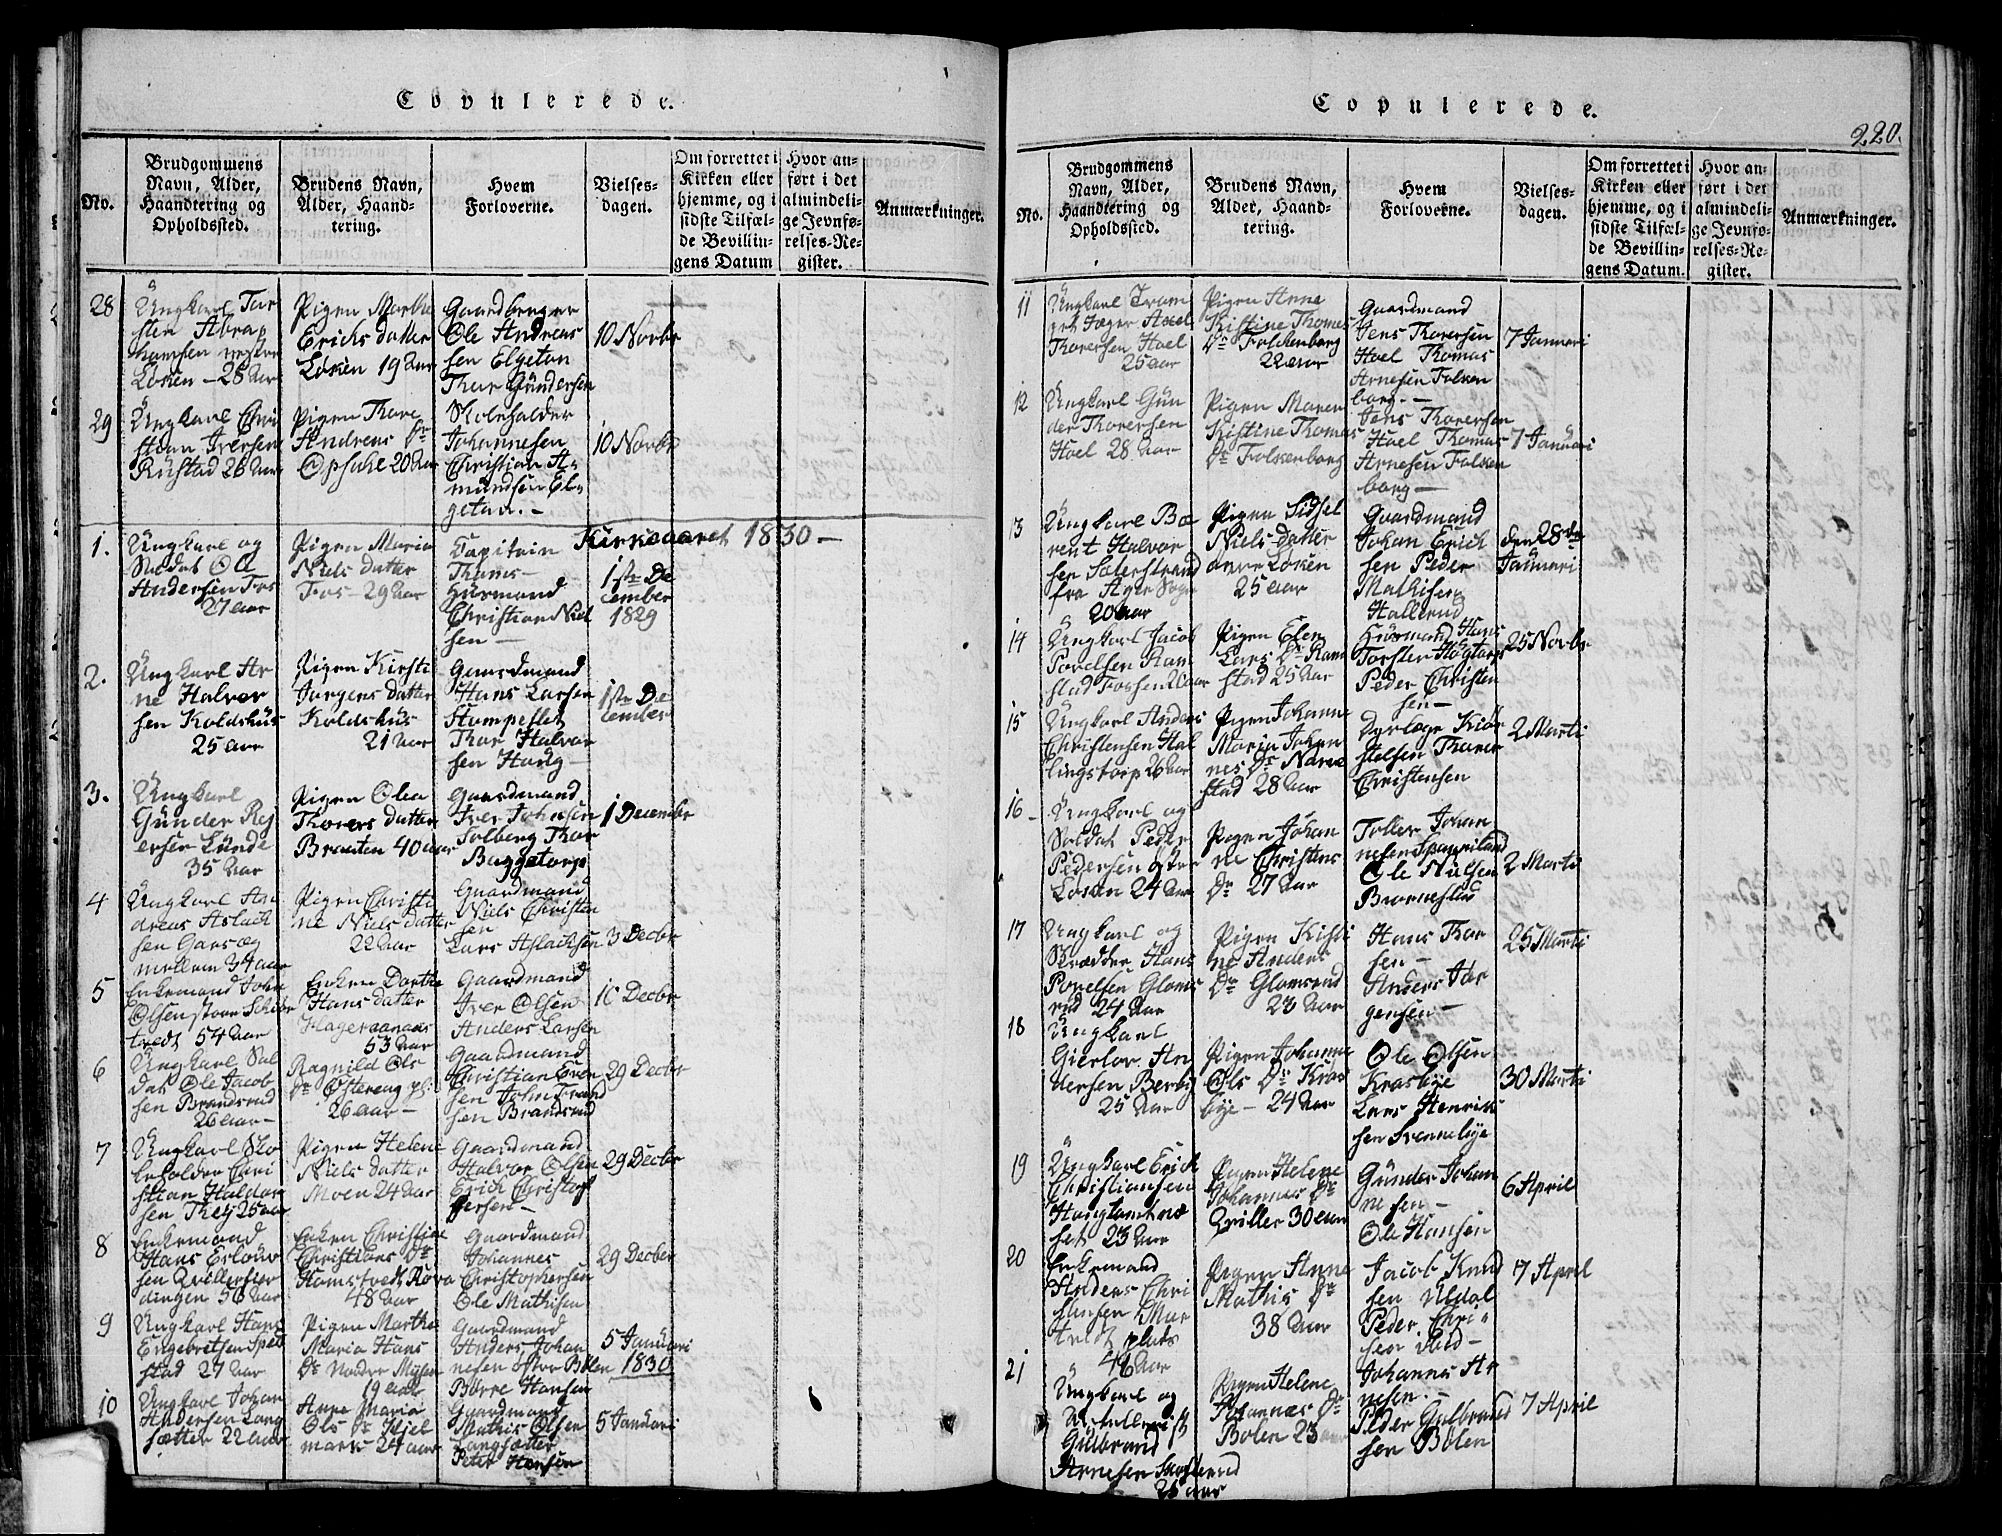 Copulerede.
No.
Brudgommens
Navn, Alder,
Haandtering og
Opholdssted.
Brudens Navn,
Alder, Haand-
tering.
Hvem
Forloverne.
Vielses-
dagen.
Om forrettet i
Kirken eller
hjemme, og i
sidste Tilfæl-
de Bevillin-
gens Datum
Hvor an-
ført i det
almindeli-
ge Jevnfø-
relses-Re-
gister.
Anmærkninger.
28
Ungkarl Tor
sten Abra
hamsen vestre
Løken - 28 Aar
Pigen Marthe
Erichs datter
Løken 19 Aar
Gaardbruger
Ole Andreas
sen Elgetan
Thor Gundersen
10 Novbr
29
Ungkarl Chri
stian Iversen
Rustad 26 Aar
Pigen Thore
Andreas Dr
Opsahl 20 Aar
Skoleholder
Johannesen
Christian A-
mundsen El-
getan. -
10 Novbr
Kirkeaaret 1830 -
1.
Ungkarl og
Soldat Ole
Andersen Fos
27 aar
Pigen Maria
Niels datter
Fos - 29 Aar
Capitain
Thoms -
Husmand
Christian Niel
sen -
1ste De
cember
1829
2.
Ungkarl Ar
ne Halvor
sen Koldshus
25 aar
Pigen Kirsti
Jørgens datter
Koldshus
21 Aar
Gaardmand
Hans Larsen
Stumpeflet
Thor Halvor
sen Haug -
1ste De
cember
3.
Ungkarl
Gunder Rej
ersen Lunde
35 Aar
Pigen Olea
Thorers datter
Braaten 40 aar
Gaardmand
Iver Johnsen
Solberg Thor
Buggetorp
1 December
4
Ungkarl An
dreas Aslack
sen Garseg
mellem 34 aar
Pigen Christi
ne Niels datter
22 Aar
Gaardmand
Niels Christen
sen
Lars Aslacksen
3 Decbr
5
Enkemand John
Olsen store
54 Aar
Enken Dorthe
Hans datter
53 Aar
Gaardmand
Iver Olsen
Anders Larsen
10 Decbr
6
Ungkarl Sol
dat Ole Jacob
sen Brandsrud
26 aar -
Ragnild Ols
Dr Østereng pl:
26 aar -
Gaardmand
Christian Even
sen John
sen Brandsrud
29 Decbr
7
Ungkarl Sko
leholder Chri
stian Haldor
sen They 25 aar
Pigen Helene
Niels datter
Moen 24 aar
Gaardmand
Halvor Olsen
Erich Christof
fersen -
29 Decbr
8
Enkemand
Hans
sen
dingen 56 Aar
Enken Christine
Christians Dr
Homstvedt
48 Aar
Gaardmand
Johannes
Christophersen
Ole Mathisen
29 Decbr
9
Ungkarl Hans
Engebretsen
stad 27 Aar
Pigen Marthe
Maria Hans
Dr Nedre Mysen
19 aar
Gaardmand
Anders Johan
nesen østre Bølen
Børre Hansen
5 Januari
1830
10
Ungkarl Johan
Andersen Lang
sætter 22 aar
Anne Maria
Ols Dr Hjel
mark 24 aar
Gaardmand
Mathis Olsen
Langsætter
Peter Hansen
5 Januari
Copulerede.
220.
No.
Brudgommens
Navn, Alder,
Haandtering og
Opholdssted.
Brudens Navn,
Alder, Haand-
tering.
Hvem
Forloverne.
Vielses-
dagen.
Om forrettet i
Kirken eller
hjemme, og i
sidste Tilfæl-
de Bevillin-
gens Datum.
Hvor an-
ført i det
almindeli-
ge Jevnfø-
relses-Re-
gister.
Anmærkninger.
11
Ungkarl
Jæger Axel
Thorersen Hoel
25 aar
Pigen Anne
Kistine Thomas
Dr Falckenborg
22 aar
Gaardmand
Jens Thorersen
Hoel Thomas
Arnesen Falken
borg. -
7 Januari
12
Ungkarl Gun
der Thorersen
Hoel 28 Aar
Pigen Maren
Kistine Thomas
Dr Falkenborg
Jens Thorersen
Hoel Thomas
Arnesen Falken
borg -
7 Januari
13
Ungkarl Be
rent Halvor
sen Solerstrand
fra Sogn
20 aar
Pigen Sidsel
Niels datter
Løken
25 aar
Gaardmand
Johan Erich
sen Peder
Mathisen
Hallerud
den 28de
Januari
14
Ungkarl Jacob
Povelsen Ram
stad Fossen
Pigen Elen
Lars Dr Ram
stad 25 Aar
Husmand Hans
Torsten Høgtorp
Peder Christen
sen -
25 Novbr
15
Ungkarl Anders
Christensen Hal
lingstorp 26 Aar
Pigen Johanne
Maria Johan
nes Dr Nare
stad 28 Aar
Dyrlæge Kiør
stelsen Thorer
Christensen
2 Marti
16 -
Ungkarl og
Soldat Peder
Pedersen østre
Løken 24 Aar
Pigen Johan
ne Christens
Dr 27 Aar
Toller Johan
nesen
Ole Nielsen
Brønnestad
2 Marti
17
Ungkarl og
Skredder Hans
Povelsen Gloms
rud 24 Aar
Pigen Kisti
ne Anders
Dr Glomsrud
23 Aar
Hans Thor
sen -
Anders Jør
gensen -
25 Marti
18
Ungkarl
Gierløv An
dersen Berby
25 Aar
Pigen Johanne
Ols Dr Kras
bye - 24 Aar
Ole Olsen
Krasbye
Lars Henrik
sen Svennebye
30 Marti
19
Ungkarl Erich
Christiansen
Haugtomtnæ
set 23 Aar
Pigen Helene
Johannes Dr
Qviller 30 aar
Gunder Johan
nesen -
Ole Hansen
6 April
20
Enkemand
Anders Chri
stiansen
plads
46 Aar
Pigen Anne
Mathis Dr
38 Aar
Jacob Knud
sen Uldal
Peder Chri-
sen -
7 April
21
Ungkarl og
Gulbrand
Arnesen
26 Aar
Pigen Helene
Johannes Dr
Bølen 23 aar
Johannes Ar
nesen. -
Peder Gulbrand
sen Bølen
7 April